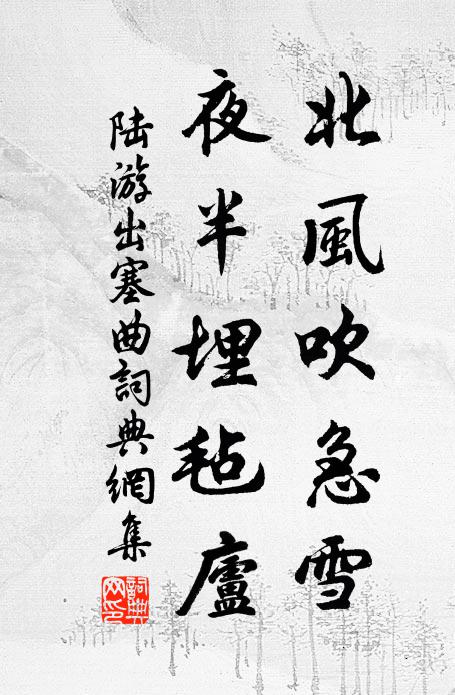 北風吹急雪
夜半埋毡廬
陆游出塞曲詞典網集
詞典